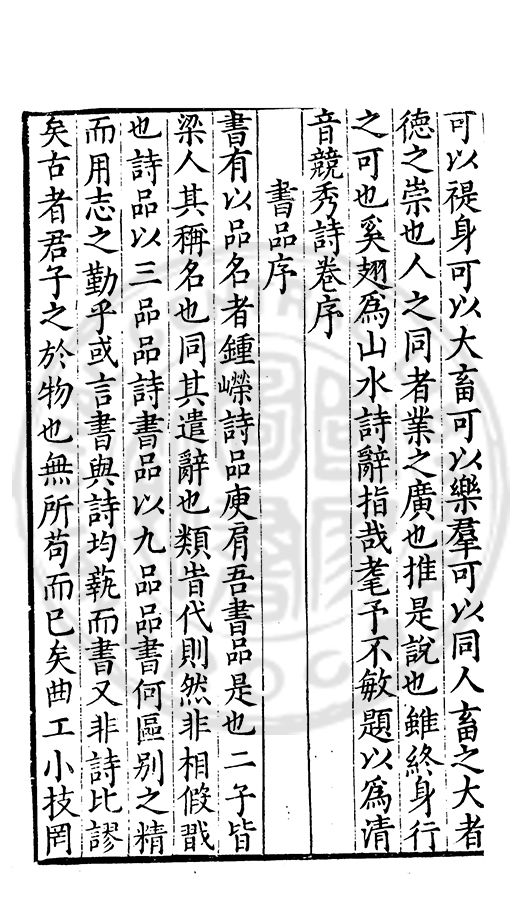 可以禔身可以大畜可以樂羣可以同人畜之大者
德之崇也人之同者業之廣也推是說也雖終身行
之可也奚翅爲山水詩辭指哉耄予不敏題以爲清
音競秀詩卷序
書品序
書有以品名者鍾嶸詩品庾肩吾書品是也二子皆
梁人其稱名也同其遣辭也類旹代則然非相假戬
也詩品以三品品詩書品以九品品書何區別之精
而用志之勤乎或言書與詩均蓺而書又非詩比謬
矣古者君子之於物也無所苟而已矣曲工小技罔